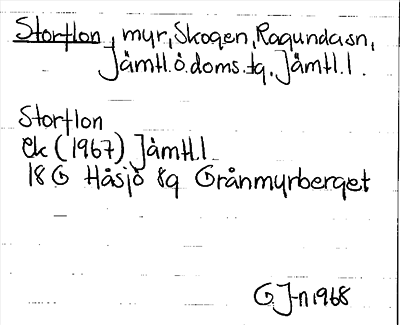 Storflon, myr, Skogen, Ragundasn,
Jämtl.ö.doms.tg., Jämtl.l.
Storflon
ek (1967) Jämtl.l
18 G Håsjö 8g Grånmyrberget
G J-n 1968